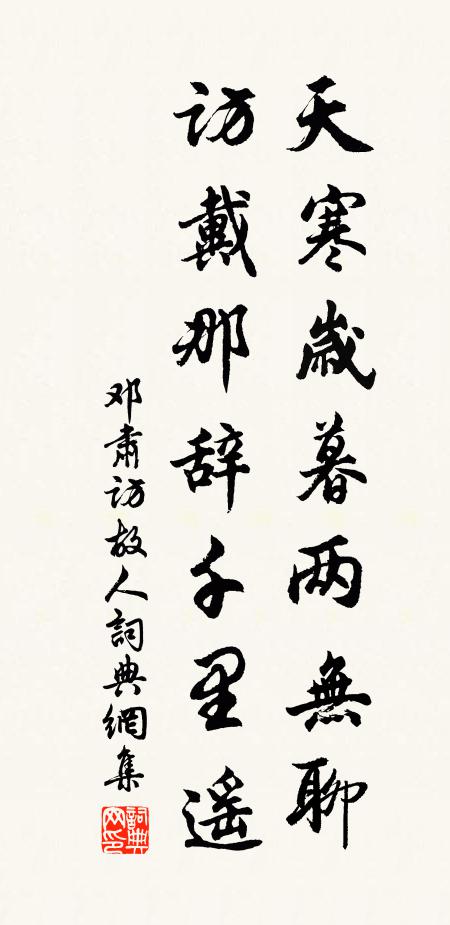 天寒歲暮两無聊
访戴那辞千里遥
邓肅访故人詞典網集
詞典网印